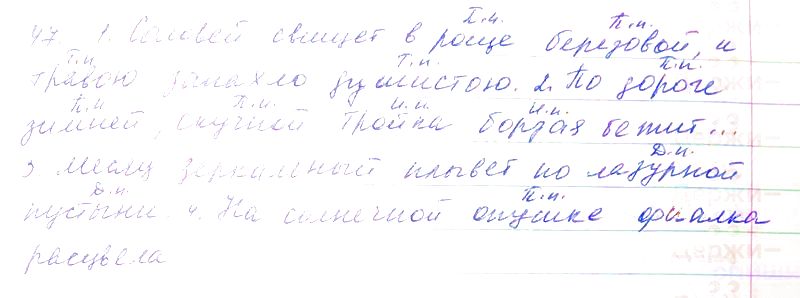 П.п. П.п.
47. 1. Соловей свищет в роще березовой, и
Т.п. Т.п. П.п.
травою запахло душистою. 2. По дороге
П.п П.п. И.п. И.п.
зимней, скучной Тройка борзая бежит...
Д.п.
3 Месяц зеркальный плывет по лазурной
Д.п. П.п.
пустыни. 4. На солнечной опушке фиалка
расцвела